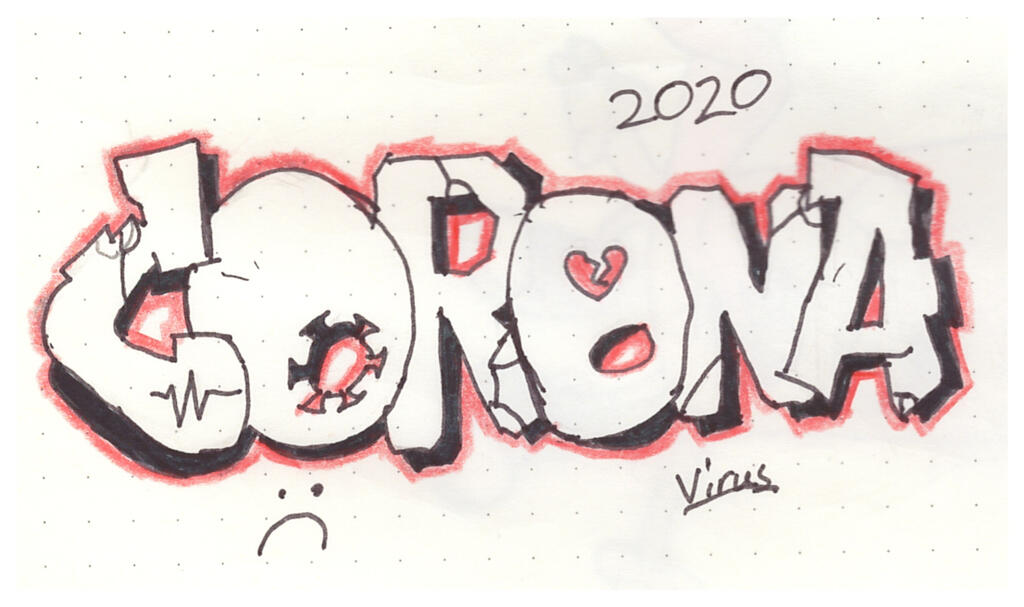 2020
CORONA
Virus